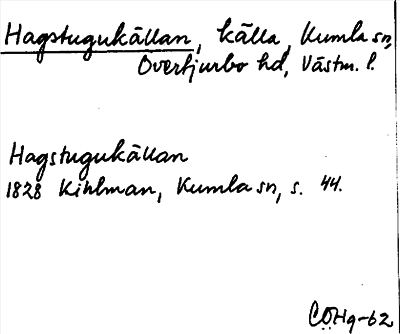 Hagstugukällan, källa, Kumla sn,
Övertjurbo hd, Västm. l.
Hagstugukällan
1828 Kihlman, Kumla sn, s. 44.
CÖHg-62